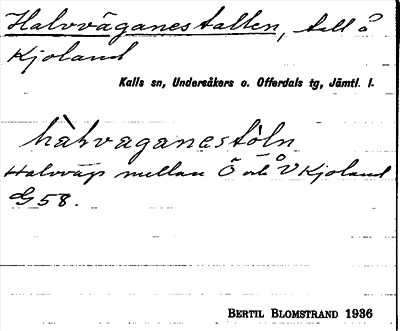 Halvväganestallen, tall å
Kjoland
Kalls sn, Undersåkers o. Offerdals tg, Jämtl. l.
hàhvaganestöln
Halvväg mellan Ö och V Kjoland
G58.
BERTIL BLOMSTRAND 1936